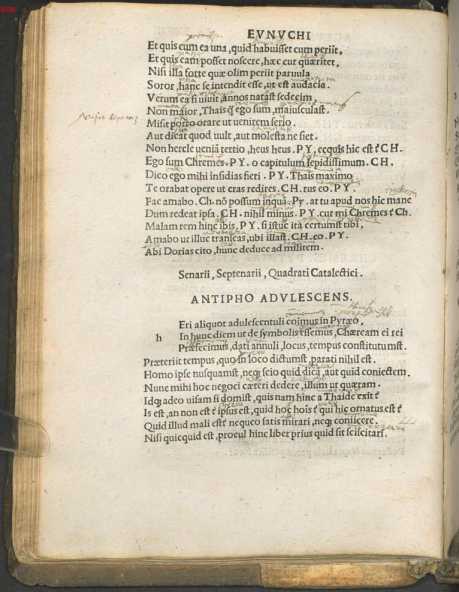 EVNVCHI
Et quis cum ea una, quid habuisset cum periit,
Et quis eam posset noscere, hæc cur quæritet,
Nisi illa forte quæ olim periit paruula
Soror, hanc se intendit esse, ut est audacia.
Verum ea si uiuit, annos nata st sedecim,
Non maior, Thais q̃ ego sum, maiuscula st.
Misit porro orare ut uenirem serio.
Aut dicat quod uult, aut molesta ne siet.
Non hercle ueniã tertio, heus heus. P Y. ecquis hic est? C H
Ego sum Chremes. P Y. o capitulum lepidissimum. C H.
Dico ego mihi insidias fieri. P Y. Thais maximo
Te orabat opere ut cras redires. C H. rus eo. P Y.
Fac amabo. Ch. nõ possum inquã. Py. at tu apud nos hic mane
Dum redeat ipsa. C H. nihil minus. P Y. cur mi Chremes? Ch.
Malam rem hinc ibis. P Y. si istuc ita certum st tibi,
Amabo ut illuc transeas, ubi illa st. C H. eo. P Y.
Abi Dorias cito, hunc deduce ad militem.
Senarii, Septenarii, Quadrati Catalectici.
ANTIPHO ADVLESCENS.
Eri aliquot adulescentuli coimus in Pyræo,
h In hunc diem ut de symbolis essemus, Chæream ei rei
Præfecimus, dati annuli, locus, tempus constitutum st.
Præteriit tempus, quo in loco dictum st, parati nihil est.
Homo ipse nusquam st, neq; scio quid dicã, aut quid coniectem.
Nunc mihi hoc negoci cæteri dedere, illum ut quæram.
Idq; adeo uisam si domi st, quis nam hinc a Thaide exit?
Is est, an non est? ipsus est, quid hoc hois? qui hic ornatus est?
Quid illud mali est? nequeo satis mirari, neq; coniicere.
Nisi quicquid est, procul hinc liber prius quid sit sciscitari.